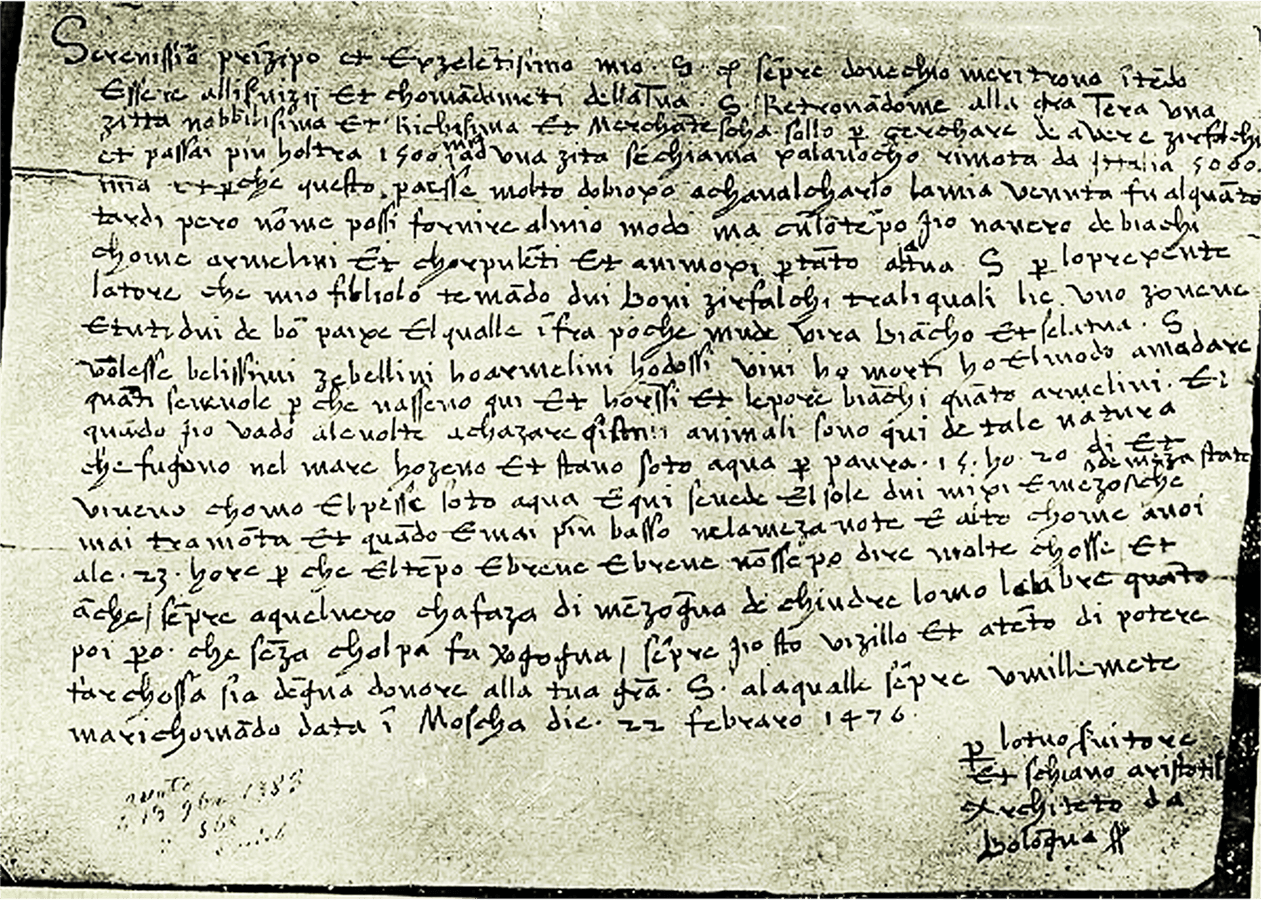 Serenissiō prīzipo et Exzelētisimo mio. S. ꝑ sēpre donechio meritrovo ītēdo
Essere alliſuizij Et chomādameti dellaTua. S Retrovādome alla gra Tera una
zitta nobbilisima Et Richisima Et Merchāteſcha sollo ꝑ cerchare de avere zirfalchi
et passai piu holtra 1500 mia ad una zita sechiama xalauocho rimota da Ittalia 5000.
mia et ꝑche questo paesse molto dobioxo achavalcharlo lamia venuta fu alquāto
tardi pero nōme possi fornire almio modo ma cūlotēpo Jio navero de biāchi
chome armelini Et chorpulēti Et animoxi ꝑtāto alatua S ꝑ loprexente
latore che mio fibliolo temādo dui boni zirfalchi traliquali lie uno zovene
Etuti dui de bō paixe Elqualle īfra poche mude vira biācho Et selatua. S
volesse belissimi zebellini hoarmelini hodossi vivi ho morti hoElmodo amadare
quāti sene vole ꝑ che nasseno qui Et horssi Et lepore biāchi quāto armelini. Et
quādo Jio vado alevolte achazare animali sono qui de tale natura
chefugono nel mare hozeno Et stano soto aqua ꝑ paura. 15. ho. 20 di Et
viveno chomo Elpesse soto aqua E qui sevede Elsole dui mixi E mezo che de meza state
mai tramōta Et quādo Emai piu basso nelameza note E alto chome avoi
ale. 23. hore ꝑ che Eltēpo Ebreve Ebreve nōssepo dire molte chosse Et
āche/ sēpre aquelvero chafaza di mēzogna de chiudre lomo lelabre quāto
poi ꝑo. che sēza cholpa fa vogogna/ sēpre Jio sto vizillo Et atēto di potere
far chossa sia degna donore alla tua grā. S. alaqualle sēpre umillemete
marichomādo data ī Moscha die. 22 febraro 1476.
ꝑ lotuo ſuitore
Et schiavo aristotil
Architeto da
Bologna